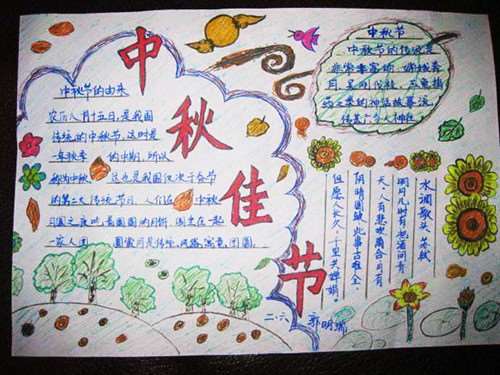 中秋佳节
中秋节的由来
农历八月十五日,是我国
传统的中秋节,这时是
一年秋季 的中期,所以
称为中秋 这也是我国仅次于春节
的第二大传统节日,人们在 中秋
月圆之夜,吃着圆圆的月饼,围坐在一起
一家人团 圆赏月是传统,风格,寓意,团圆。
中秋节
中秋节的传说是
非常丰富的,嫦娥奔
月,吴刚伐桂,玉兔捣
药之类的神话故事流
传甚广令人神往
水调歌头 苏轼
明月几时有,把酒问青
天,人有悲欢离合,月有
阴晴圆缺,此事古难全
但愿人长久,千里共婵娟
二.六